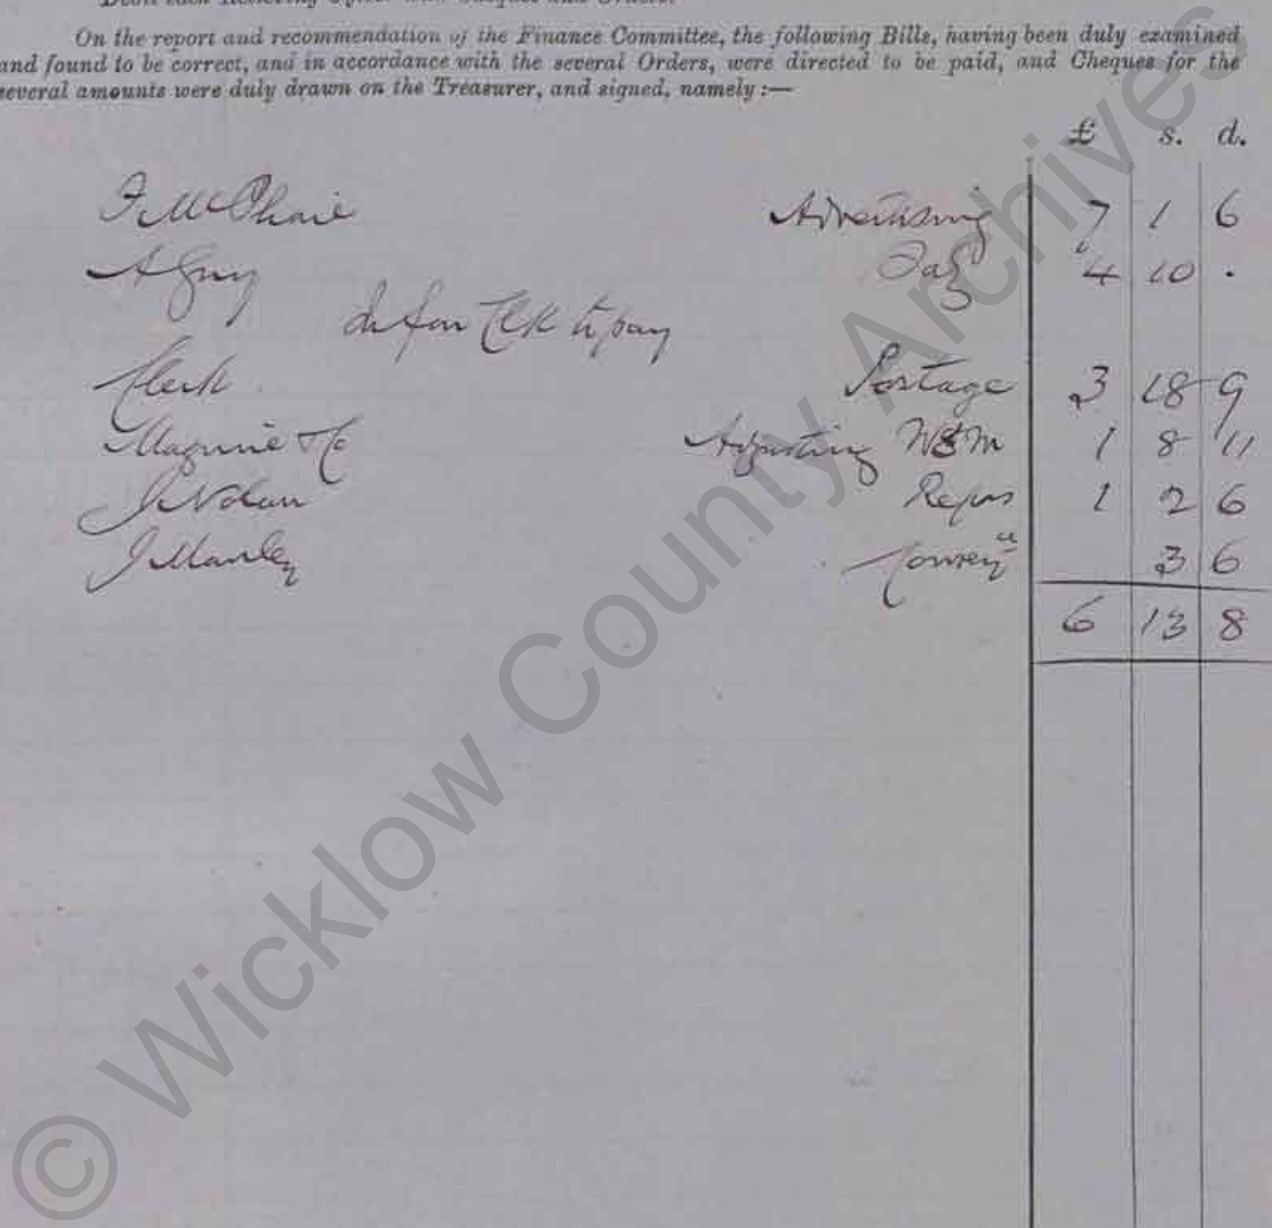 On the report and recommendation of the Finance Committee, the following Bills, having been duly examined
and found to be correct, and in accordance with the several Orders, were directed to be paid, and Cheques for the
several amounts were duly drawn on the Treasurer, and signed, namely :—
£ s. d.
F McPhail Advertising 7 1 6
A Guy 4 10 .
Clk to pay
Clerk Postage 3 18 9
Maguire & Co Adjusting W & M 1 8 11
J Nolan Repns 1 2 6
J Manley Convey 3 6
6 13 8
© Wicklow County Archives